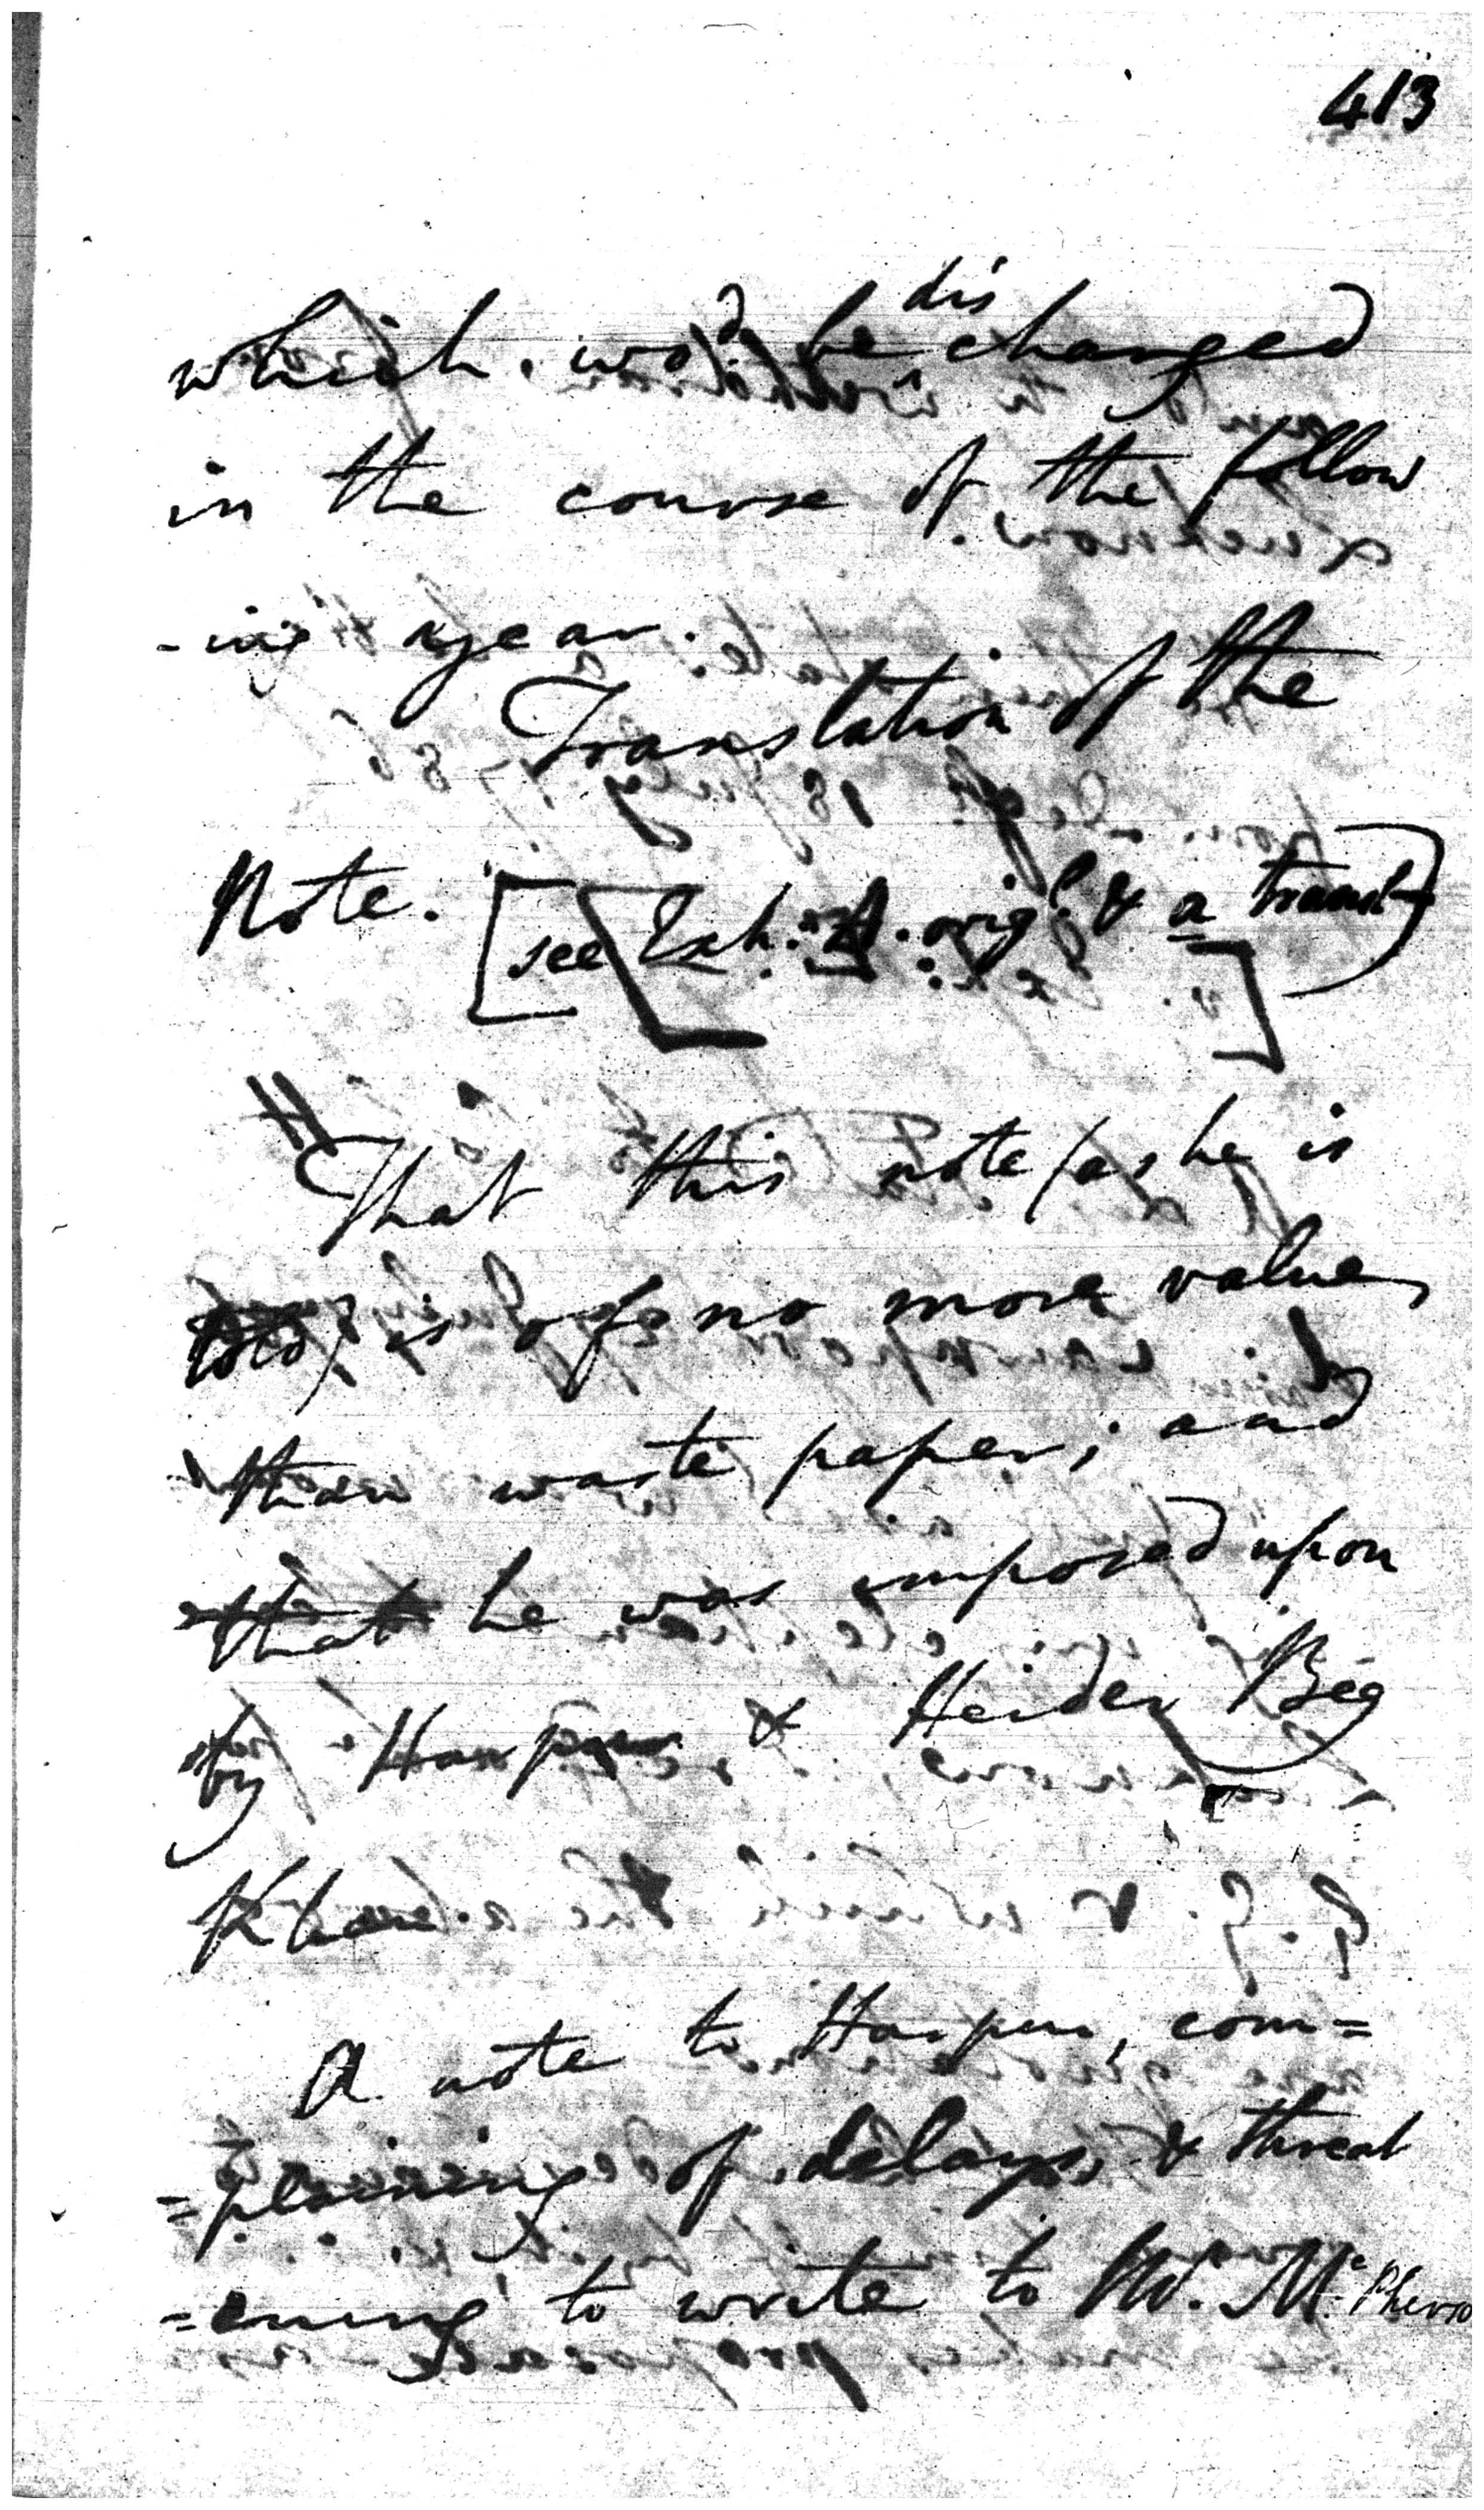 413
which wo.d be discharged
in the course of the follow
-ing year.
Translation of the
Note. [see Exh. A. orig.l & a transl]
"That this note (as he is
told) is of no more value
than waste paper; and
that he was imposed upon
by Harper & Heider Beg
Khan
A note to Harper, com=
=plaining of delays, & threat
=ening to write to Mr. McPherso